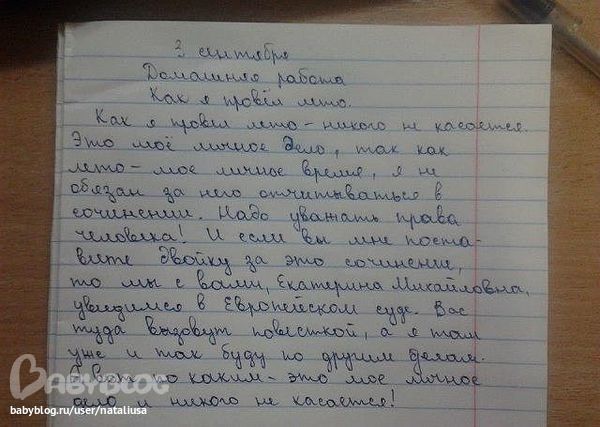 3 сентября
Домашняя работа
Как я провёл лето.
Как я провел лето – никого не касается.
Это моё личное дело, так как
лето – мое личное время, я не
обязан за него отчитываться в
сочинении. Надо уважать права
человека! И если вы мне поста-
вите двойку за это сочинение,
то мы с вами, Екатерина Михайловна,
увидимся в Европейском суде. Вас
туда вызовут повесткой, а я там
уже и так буду по другим делам.
А вот по каким – это мое личное
дело и никого не касается!
BABYBLOG
babyblog.ru/user/nataliusa